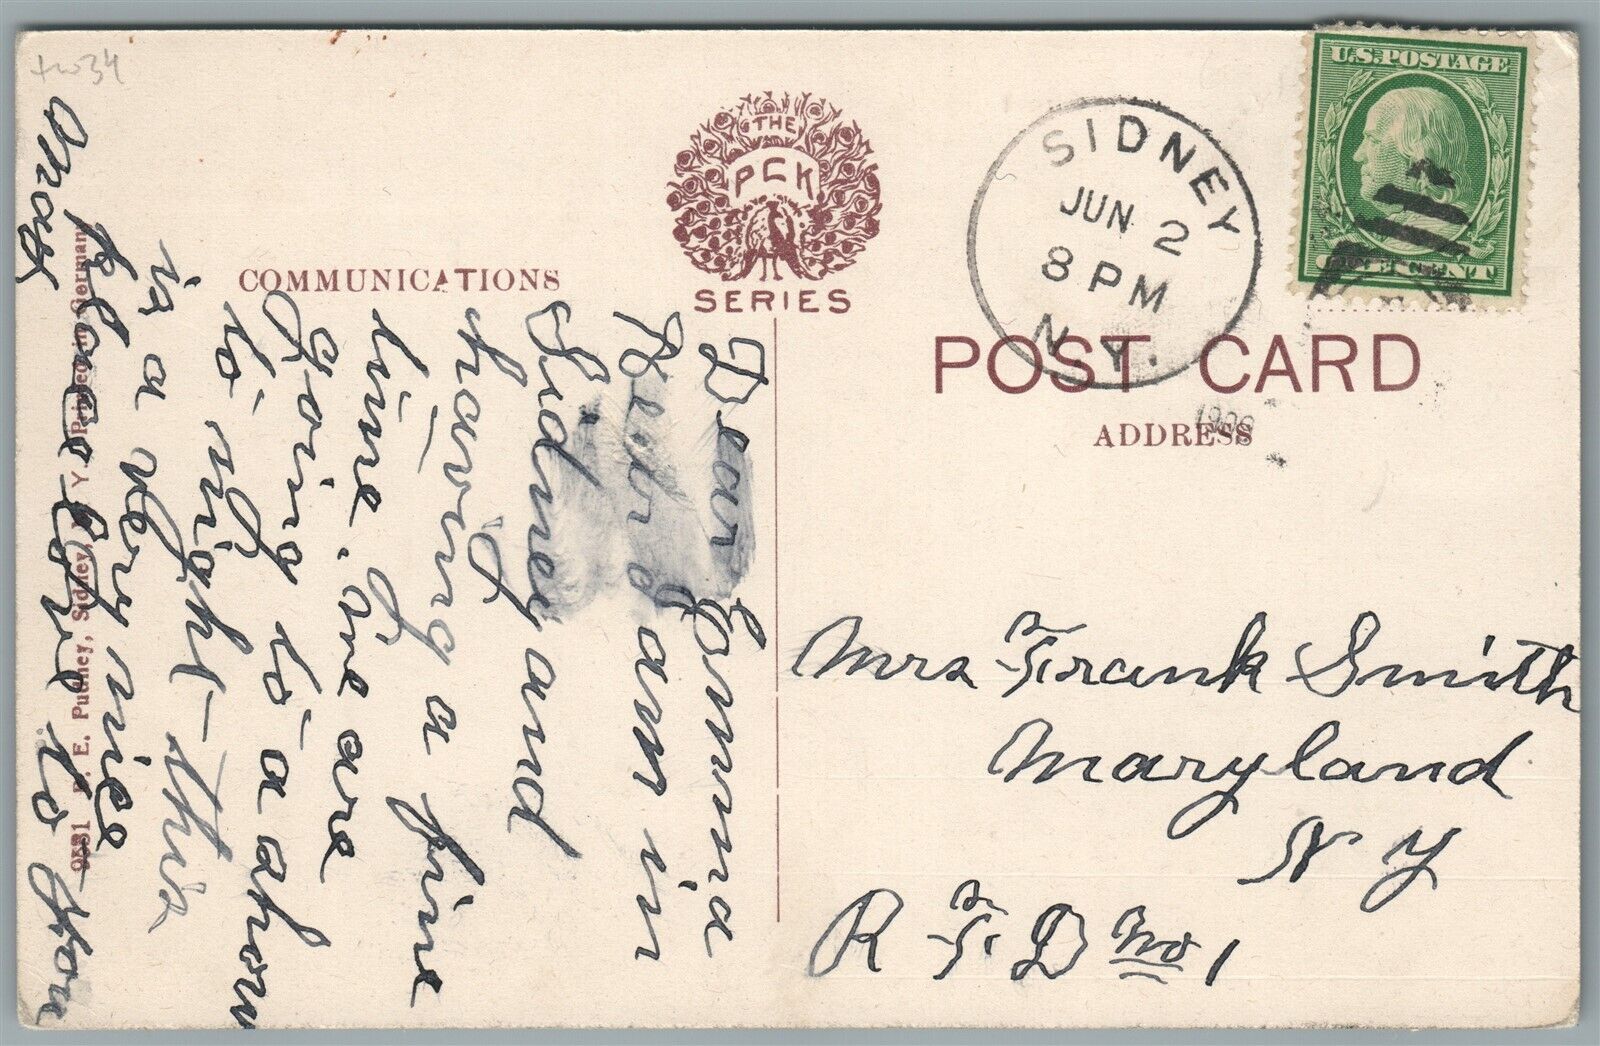 +w34
U.S. POSTAGE
ONE CENT
SIDNEY
JUN 2
8 PM
N.Y.
THE
PCK
SERIES
COMMUNICATIONS
POST CARD
ADDRESS
Dear Emma
am in
Sidney and
having a fine
time. are
going to a show
to night this
is a very nice
place Love to you
May
Mrs Frank Smith
Maryland
N Y
R F D No 1
E. Pudney, Sidney, N. Y. Printed in Germany